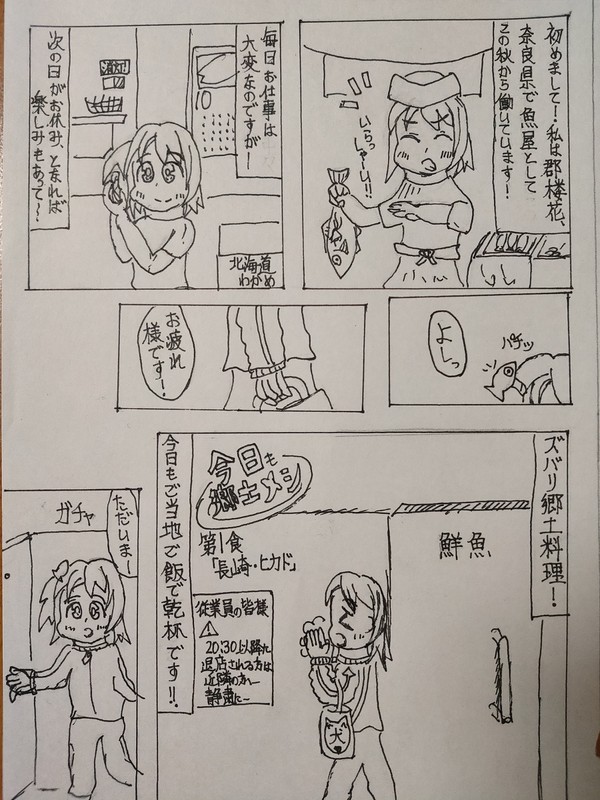 初めまして！私は郡楼花、
奈良県で魚屋として
この秋から働いています！
いらっ
しゃーい!!
毎日お仕事は
大変なのですがー
10
北海道
わかめ
次の日がお休み、ともなれば
楽しみもあって〜
パチッ
よしっ
お疲れ
様です！
ズバリ郷土料理！
鮮魚
今日も
郷土メシ
第1食
「長崎・ヒカド」
従業員の皆様
⚠
20:30以降に
退店される方は
近隣の方へ
静粛に〜
犬
今日もご当地ご飯で乾杯です!!
ガチャ
ただいまー